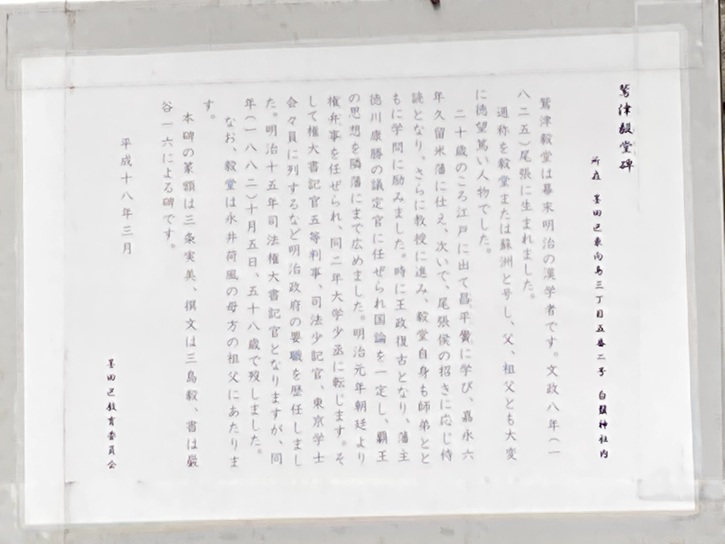 鷲津毅堂碑
所在 墨田区東向島三丁目五番二号 白鬚神社内
鷲津毅堂は幕末明治の漢学者です。文政八年(一
八二五)尾張に生まれました。
通称を毅堂または蘇洲と号し、父、祖父とも大変
に徳望篤い人物でした。
二十歳のころ江戸に出て昌平黌に学び、嘉永六
年久留米藩に仕え、次いで、尾張侯の招きに応じ侍
読となり、さらに教授に進み、毅堂自身も師弟とと
もに学問に励みました。時に王政復古となり、藩主
徳川康勝の議定官に任ぜられ国論を一定し、覇王
の思想を隣藩にまで広めました。明治元年朝廷より
権弁事を任ぜられ、同二年大学少丞に転じます。そ
して権大書記官五等判事、司法少記官、東京学士
会々員に列するなど明治政府の要職を歴任しまし
た。明治十五年司法権大書記官となりますが、同
年(一八八二)十月五日、五十八歳で歿しました。
なお、毅堂は永井荷風の母方の祖父にあたりま
す。
本碑の篆額は三条実美、撰文は三島毅、書は巌
谷一六による碑です。
平成十八年三月
墨田区教育委員会